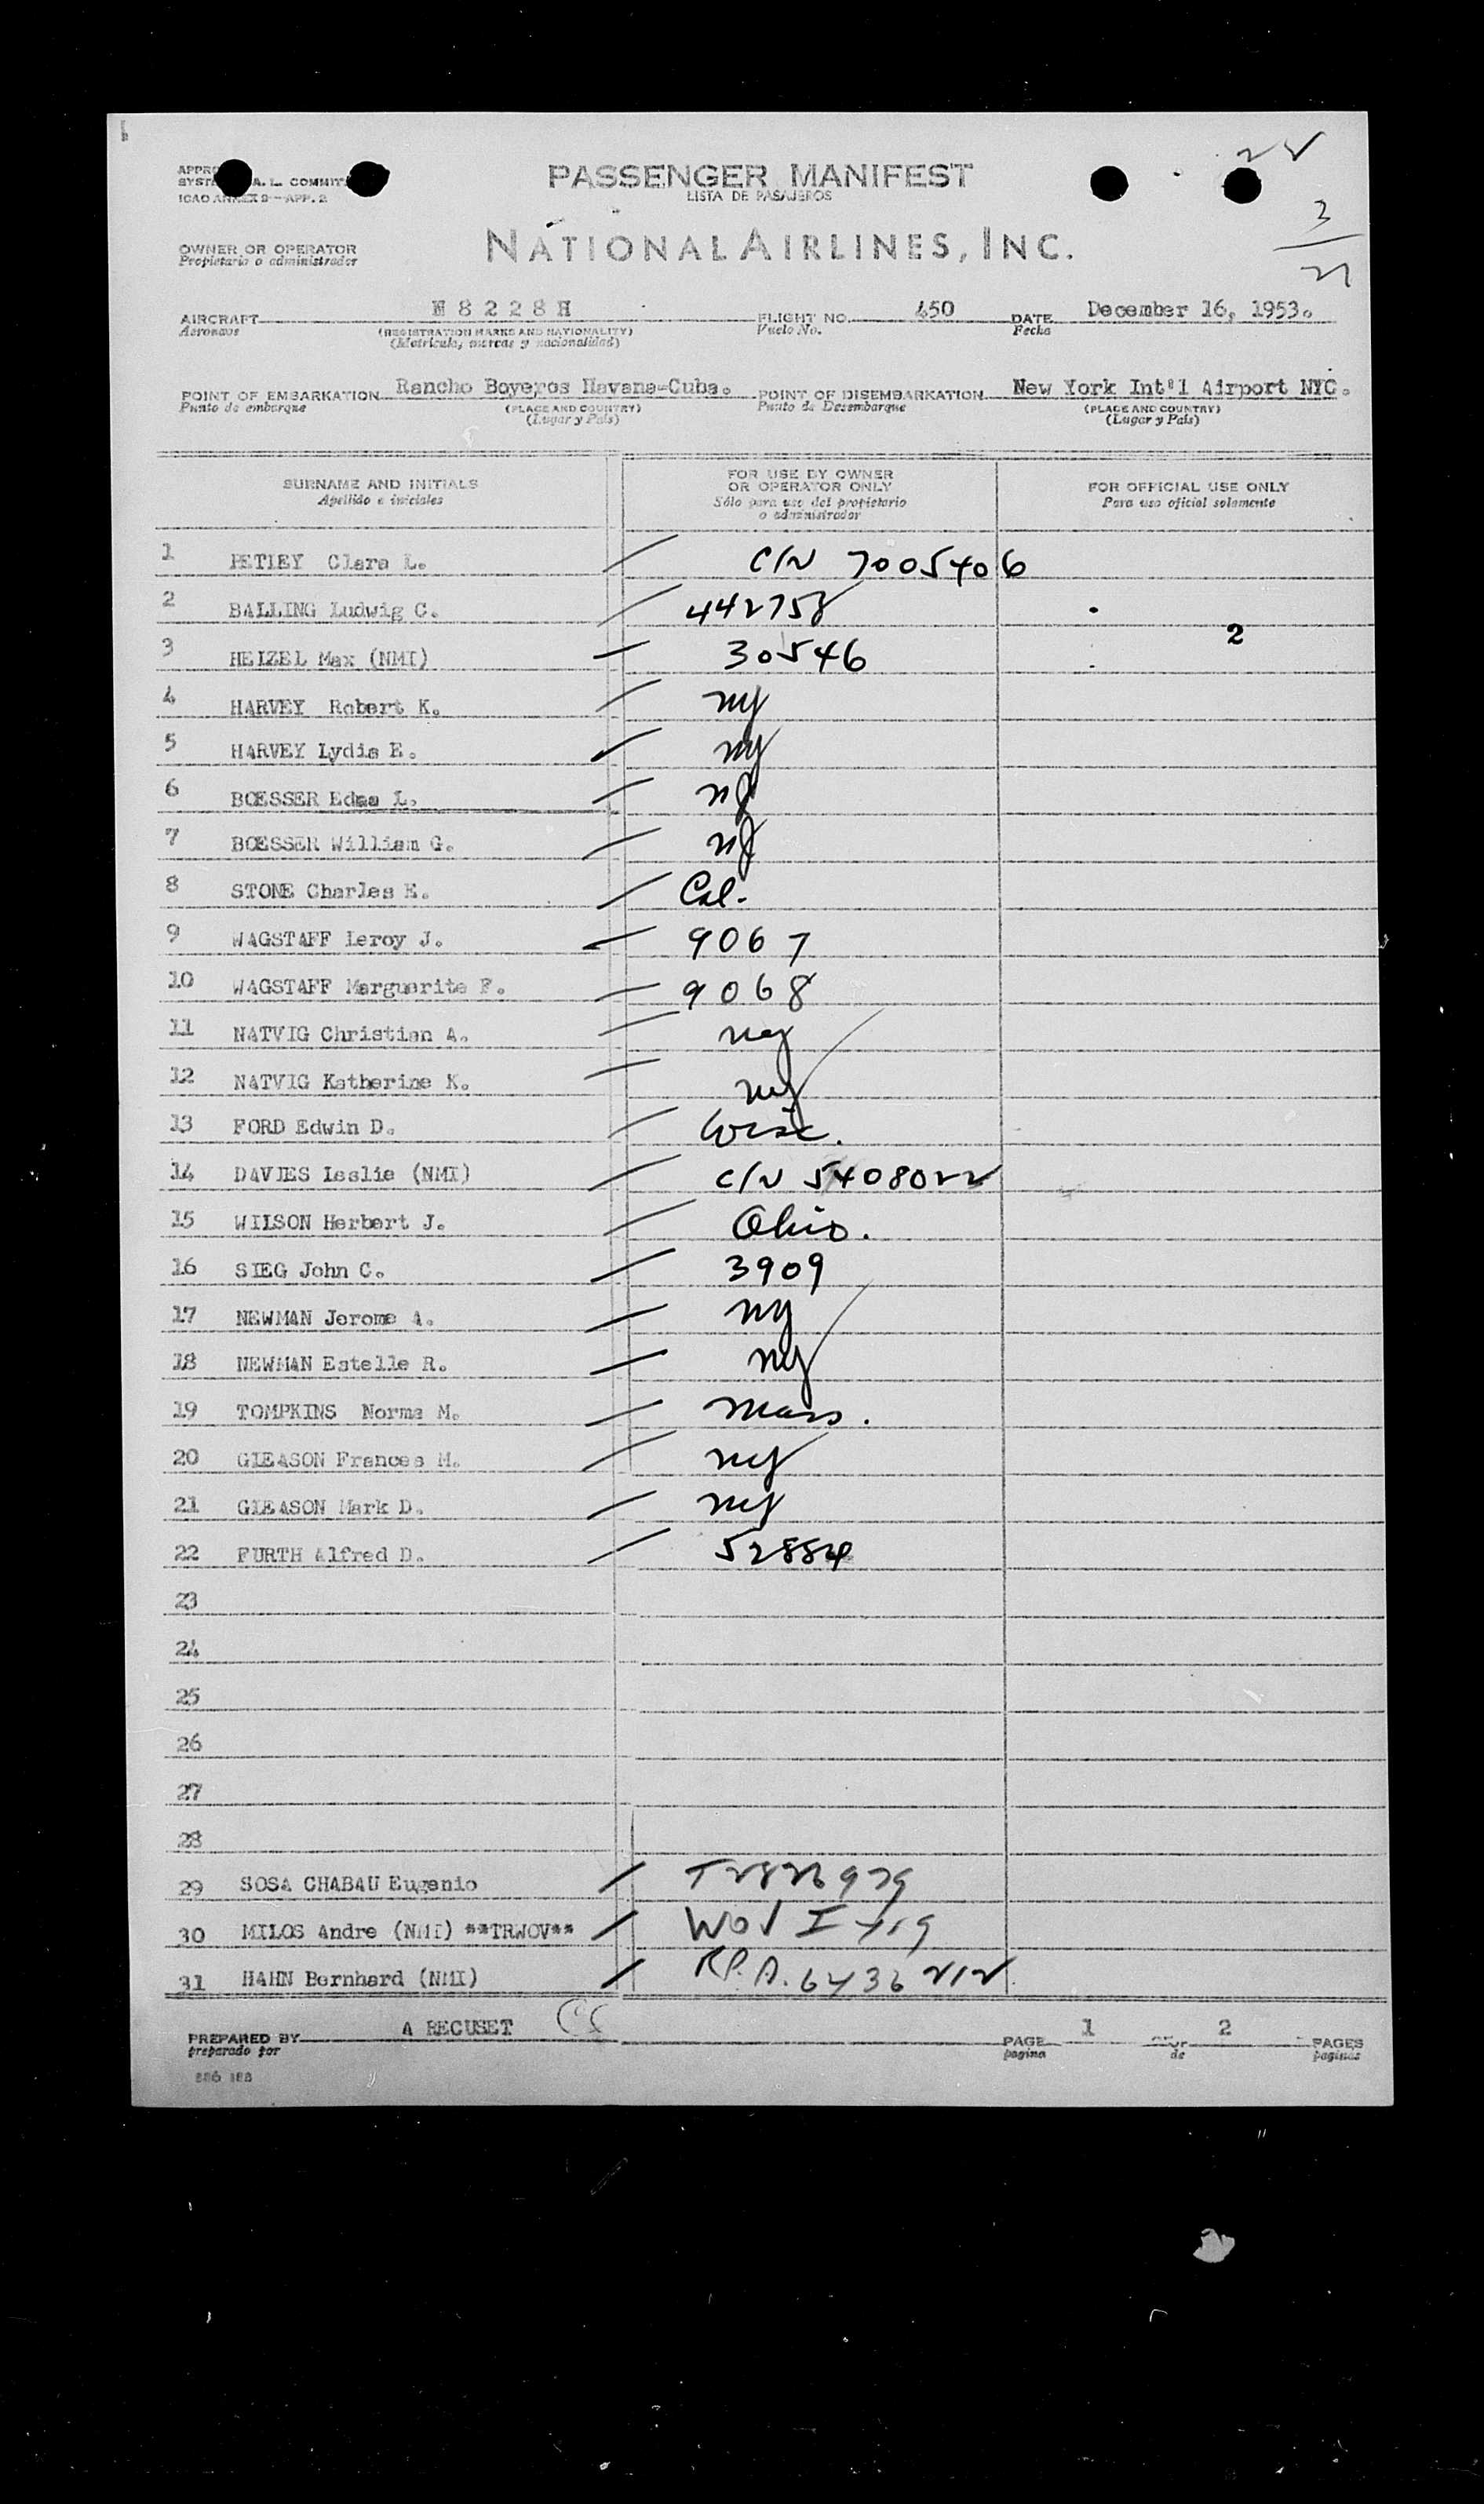 PASSENGER MANIFEST
LISTA DE PASAJEROS
A. L. COMMIT
ICAO ANNEX 9—APP. 2
3
OWNER OR OPERATOR
Propietario o administrador
NATIONAL AIRLINES, INC.
AIRCRAFT N 8 2 2 8 H FLIGHT NO. 450 DATE December 16, 1953.
Aeronave (REGISTRATION MARKS AND NATIONALITY) Vuelo No. Fecha
(Matricula, marcas y nacionalidad)
POINT OF EMBARKATION Rancho Boyeros Havana-Cuba. POINT OF DISEMBARKATION New York Int'l Airport NYC.
Punto de embarque (PLACE AND COUNTRY) Punto de Desembarque (PLACE AND COUNTRY)
(Lugar y País) (Lugar y País)
SURNAME AND INITIALS FOR USE BY OWNER OR OPERATOR ONLY FOR OFFICIAL USE ONLY
Apellido e iniciales Sólo para uso del propietario o administrador Para uso oficial solamente
1 PETLEY Clara L. C/N 7005406
2 BALLING Ludwig C. 442758
2
3 HEIZEL Max (NMI) 30546
4 HARVEY Robert K. ny
5 HARVEY Lydia E. ny
6 BOESSER Edna L. nJ
7 BOESSER William G. nJ
8 STONE Charles E. Cal.
9 WAGSTAFF Leroy J. 9067
10 WAGSTAFF Marguerite F. 9068
11 NATVIG Christian A. ny
12 NATVIG Katherine K. ny
13 FORD Edwin D. Wisc.
14 DAVIES Leslie (NMI) C/N 5408022
15 WILSON Herbert J. Ohio.
16 SIEG John C. 3909
17 NEWMAN Jerome A. ny
18 NEWMAN Estelle R. ny
19 TOMPKINS Norma M. Mass.
20 GLEASON Frances M. ny
21 GLEASON Mark D. ny
22 FURTH Alfred D. 52884
23
24
25
26
27
28
29 SOSA CHABAU Eugenio
30 MILOS Andre (NMI) **TRWOV**
31 HAHN Bernhard (NMI)
PREPARED BY A RECUSET PAGE 1 2 PAGES
preparado por pagina de paginas